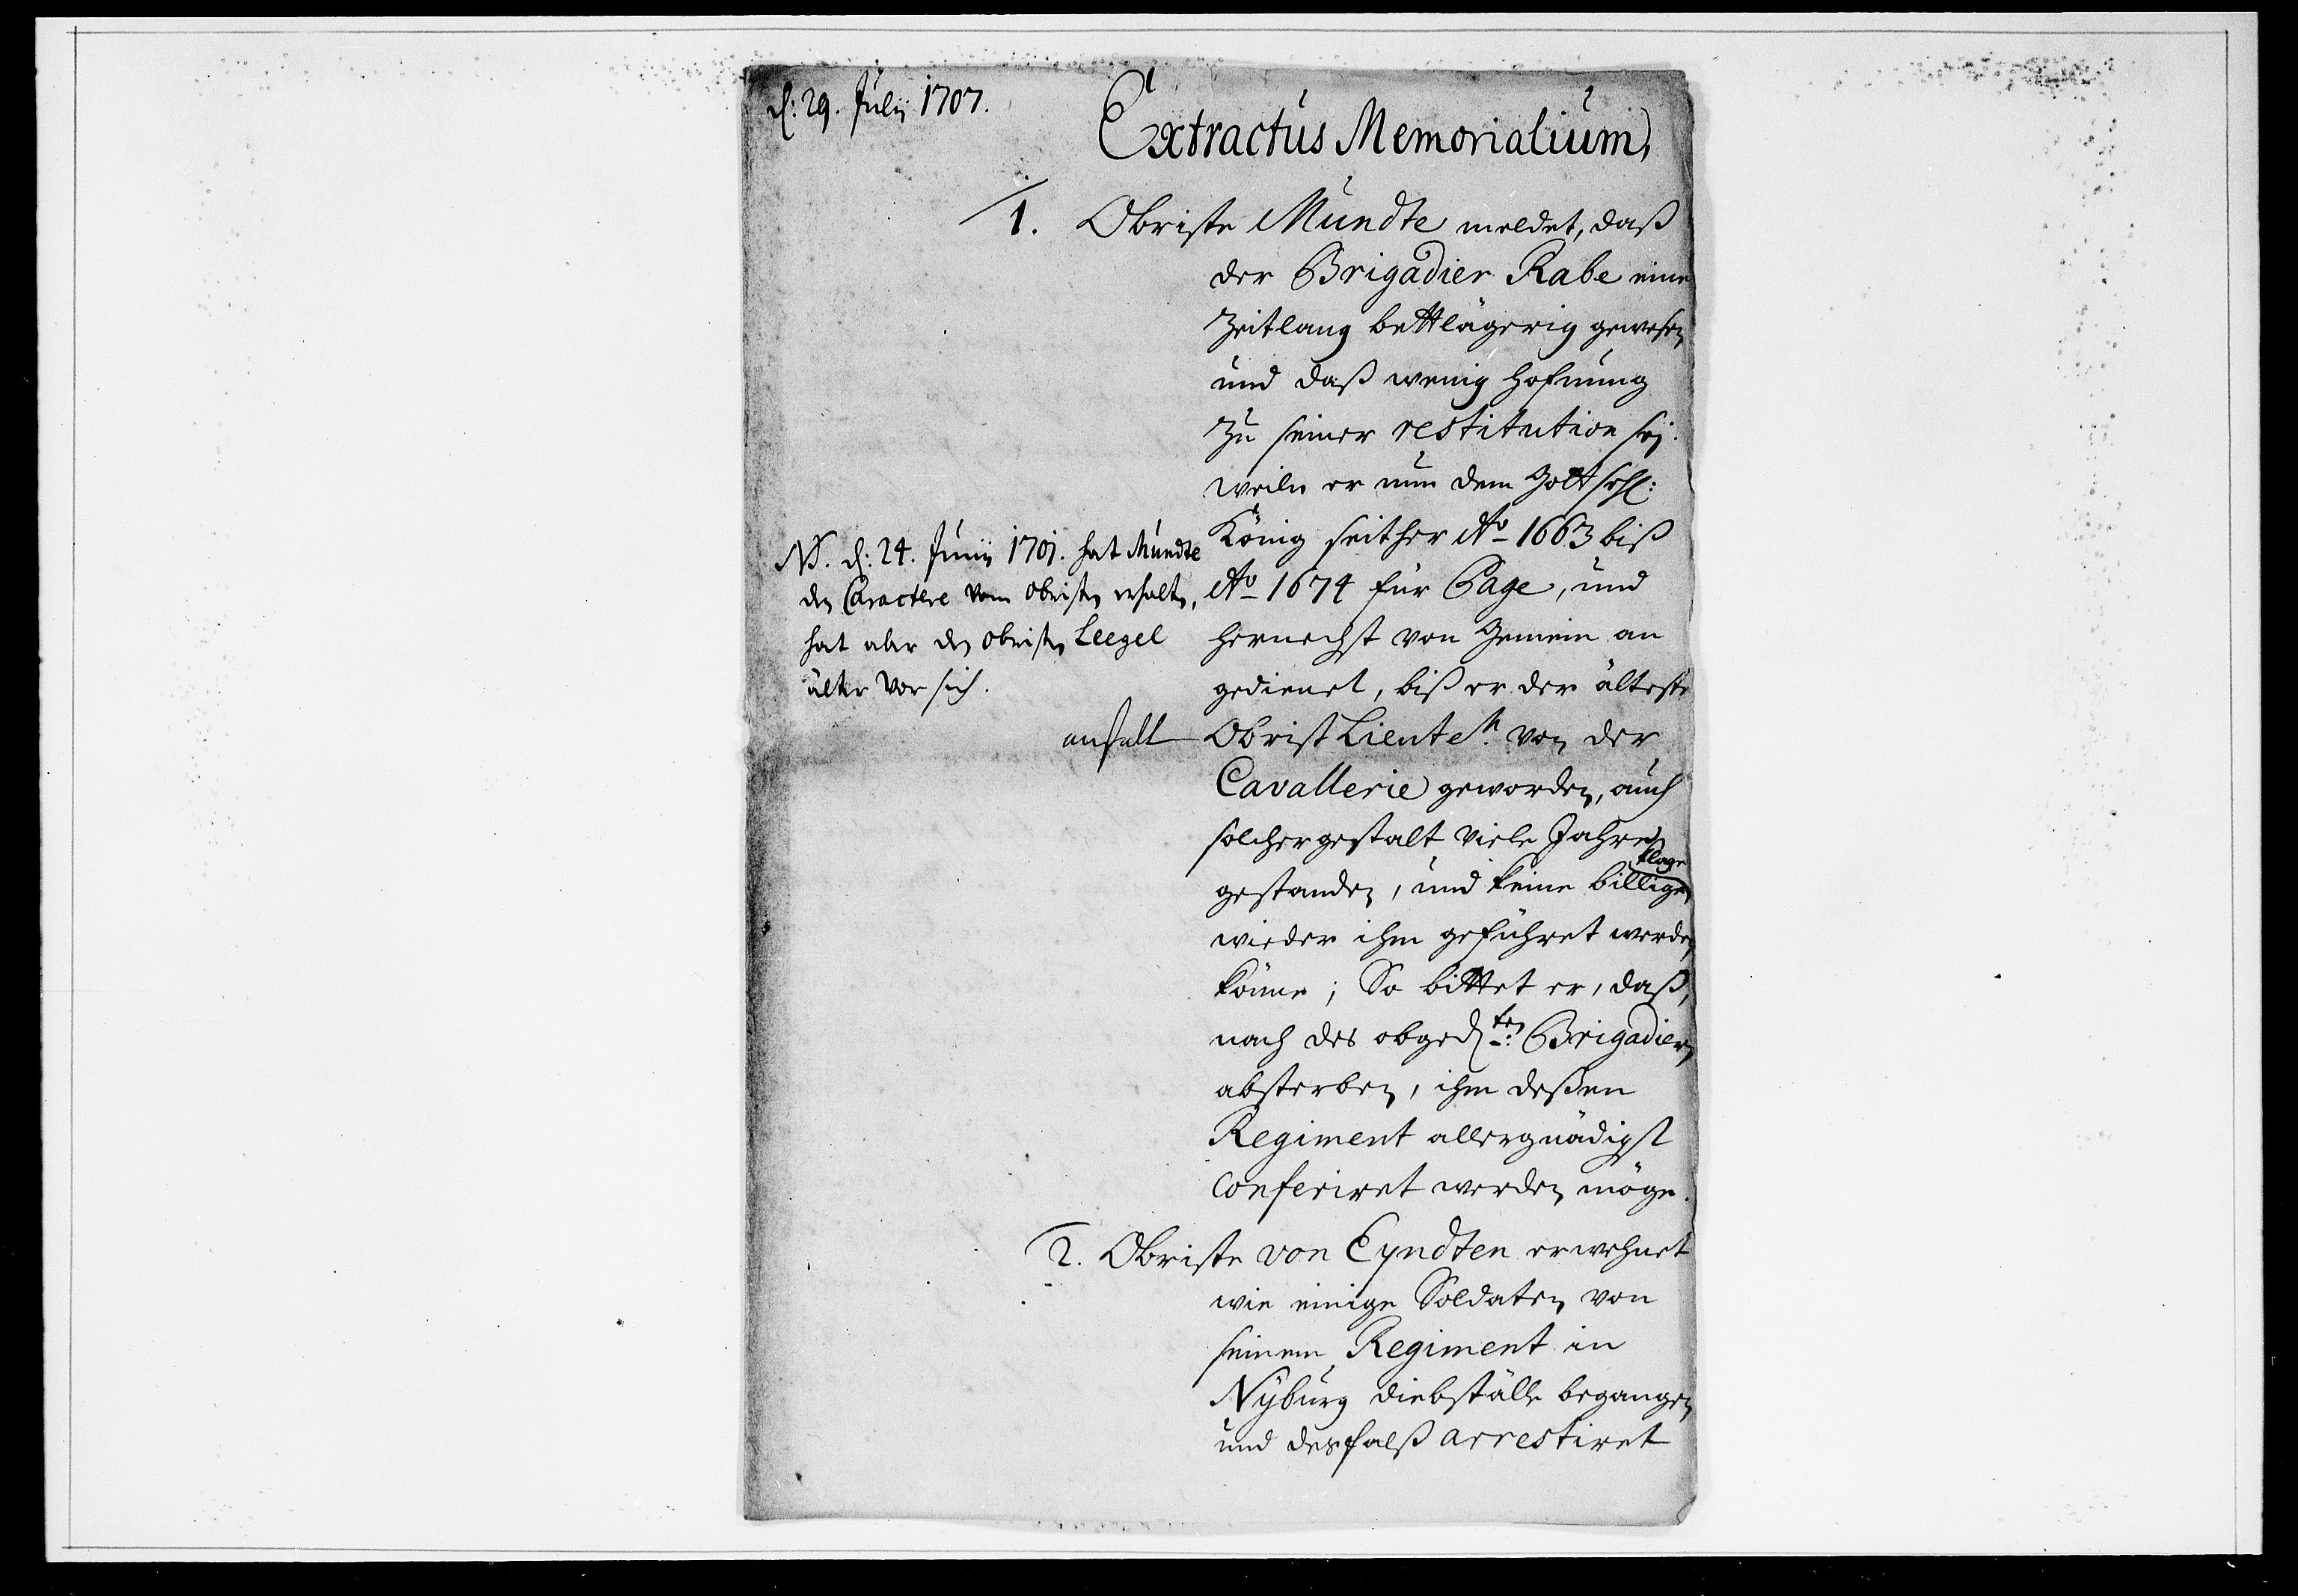 d: 29. Julij 1707.
Extractus Memorialium,
1. Obriste Mundte meldet, daß
der Brigadier Rabe eine
Zeitlang bettlägerig gewesen,
und daß wenig Hofnung
zu seiner restitution sej.
weile er nun dem Gott seel:
König seither Ao 1663 biß
Ao 1674 für Page, und
hernechst von Gemein an
gedienet, biß er der älteste
Obrist Lieuten. von der
Cavallerie geworden, auch
solchergestalt viele Jahre
gestanden, und keine billige
klage
wieder ihm geführet werden
könne; So bittet er, daß,
nach des obgedten: Brigadiern
absterben, ihm deßen
Regiment allergnädigst
conferiret werden möge.
NB. d: 24. Junij 1701. hat Mundte
den Caractere vom Obristen erhalten,
hat aber den Obristen Leegel
älter vor sich.
2. Obriste von Eyndten erwehnet
wie einige Soldaten von
seinem Regiment in
Nyburg diebställe begangen,
und desfalß arrestiret